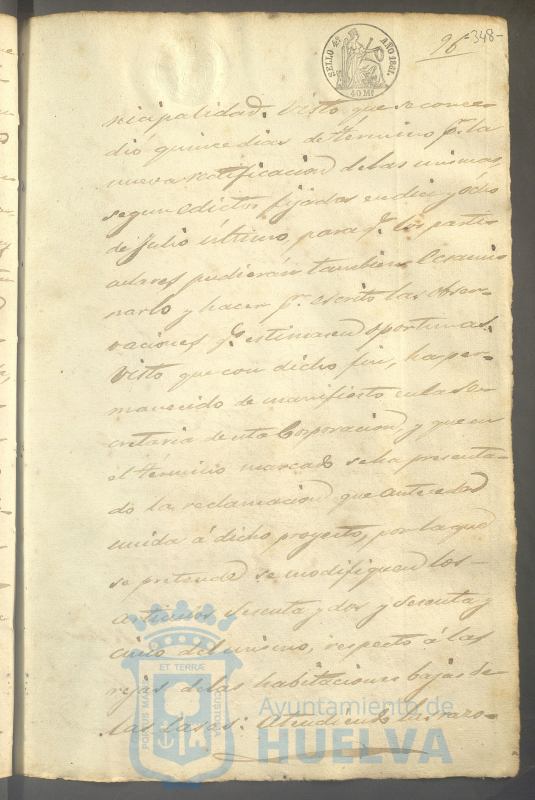 SELLO 4º AÑO 1861.
40 Ms
96 348-
nicipalidad. Visto que se conce-
dió quince dias de término pª. la
nueva rectificacion de las mismas,
segun edictos fijados en diez y ocho
de Julio último, para qe. los parti-
culares pudieran tambien ecsami-
narlo y hacer pr. escrito las obser-
vaciones qe. estimasen oportunas.
Visto que con dicho fin, ha per-
manecido de manifiesto en la Se-
cretaria de esta Corporacion, y que en
el término marcado se ha presenta-
do la reclamacion que antecede
unida á dicho proyecto, por la que
se pretende se modifiquen los
articulos sesenta y dos y sesenta y
cinco del mismo, respecto á las
rejas de las habitaciones bajas de
las casas: Atendiendo las razo-
PORTUS MARIS
ET TERRÆ
CUSTODIA
Ayuntamiento de
HUELVA